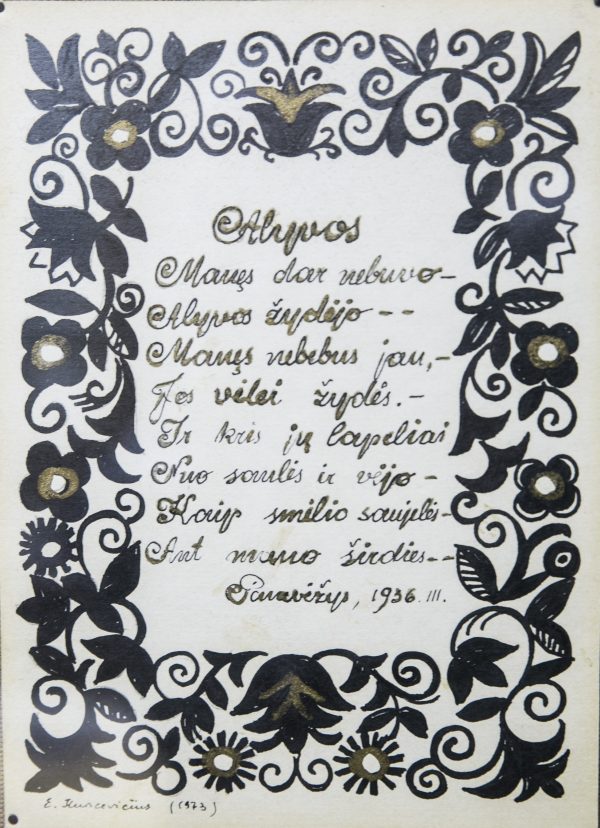 Alyvos
Manęs dar nebuvo –
Alyvos žydėjo - -
Manęs nebebus jau, –
Jos vėlei žydės. –
Ir kris jų lapeliai
Nuo saulės ir vėjo –
Kaip smilio saujelės –
Ant mano širdies - -
Panevėžys, 1936. III.
E. (1973)